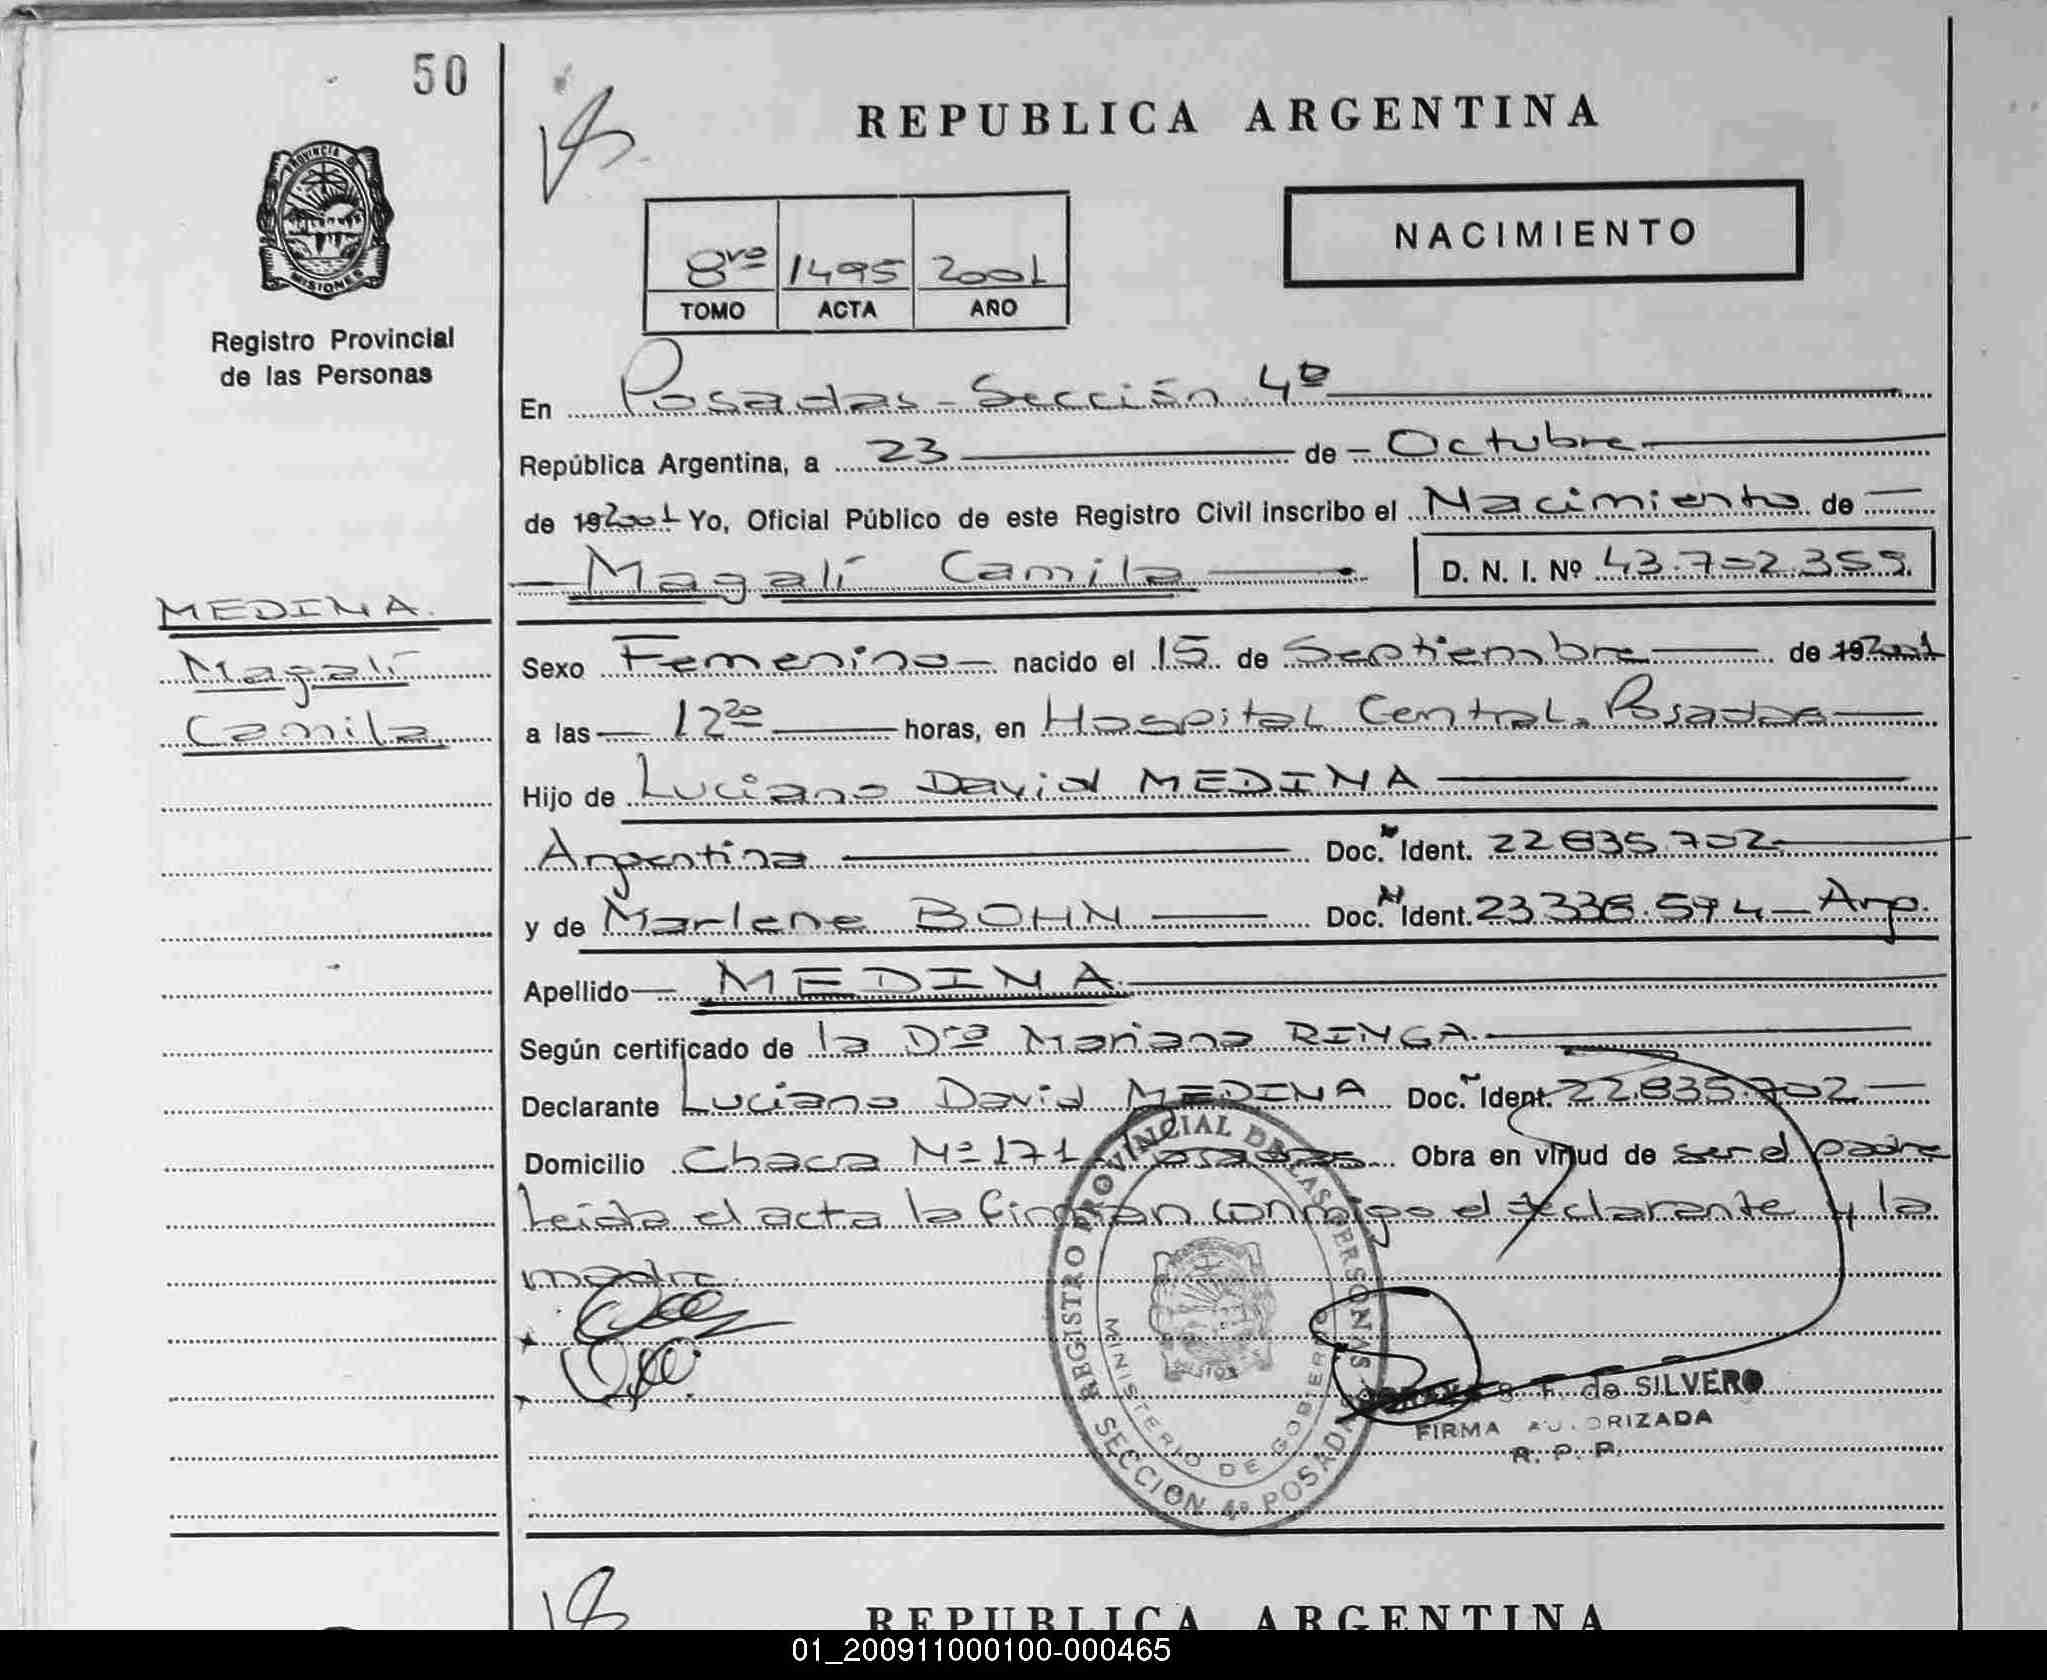 50
REPUBLICA ARGENTINA
PROVINCIA DE
MISIONES
NACIMIENTO
8vo 1495 2001
TOMO ACTA AÑO
Registro Provincial
de las Personas
En Posadas - Sección 4º
República Argentina, a 23 de Octubre
de 192001 Yo, Oficial Público de este Registro Civil inscribo el Nacimiento de
Magalí Camila D. N. I. Nº 43.702.359
MEDINA.
Magalí
Camila
Sexo Femenino nacido el 15 de Septiembre de 192001
a las 12 20 horas, en Hospital Central. Posadas
Hijo de Luciano David MEDINA
Argentina Doc. N Ident. 22.835.702
y de Marlene BOHN Doc. N Ident. 23.336.574 - Arg.
Apellido MEDINA
Según certificado de la Dra Mariana RINGA
Declarante Luciano David MEDINA Doc. Ident. 22.835.702
Domicilio Chacra Nº 171 Posadas Obra en virtud de ser el padre
Leida el acta la firman conmigo el declarante y la
madre.
REGISTRO PROVINCIAL DE LAS PERSONAS
MINISTERIO DE GOBIERNO
SECCION 4º POSADAS
S. F. de SILVERO
FIRMA AUTORIZADA
R. P. P.
REPUBLICA ARGENTINA
01_200911000100-000465